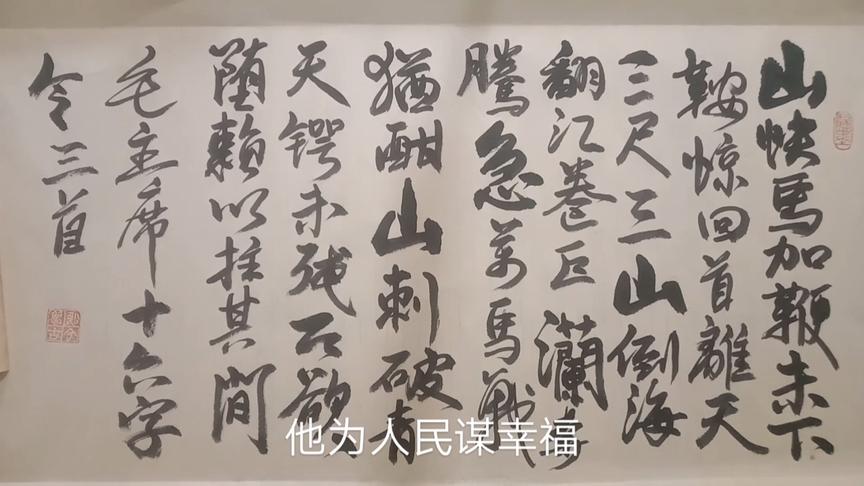 山快馬加鞭未下
鞍惊回首離天
三尺三山倒海
翻江卷巨瀾奔
騰急萬馬戰
猶酣山刺破青
天锷未残天欲
堕赖以拄其間
毛主席十六字
令三首
他为人民谋幸福